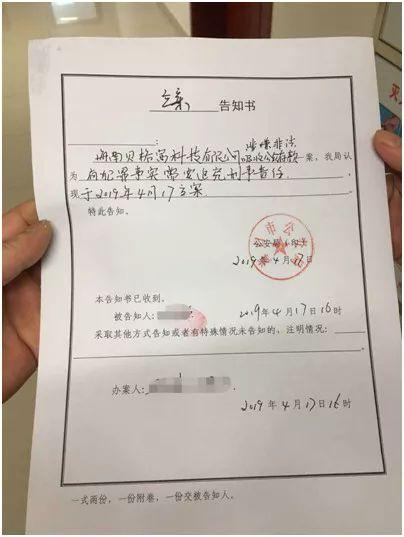 立案 告知书
：
海南贝格富科技有限公司涉嫌非法
吸收公众存款一案，我局认
为 有犯罪事实需要追究刑事责任，
现于2019年4月17立案.
特此告知。
公安局（印）
2019年4月17日
本告知书已收到。
被告知人： 2019年4月17日16时
采取其他方式告知或者有特殊情况未告知的，注明情况：
办案人：
2019年4月17日16时
一式两份，一份附卷，一份交被告知人。